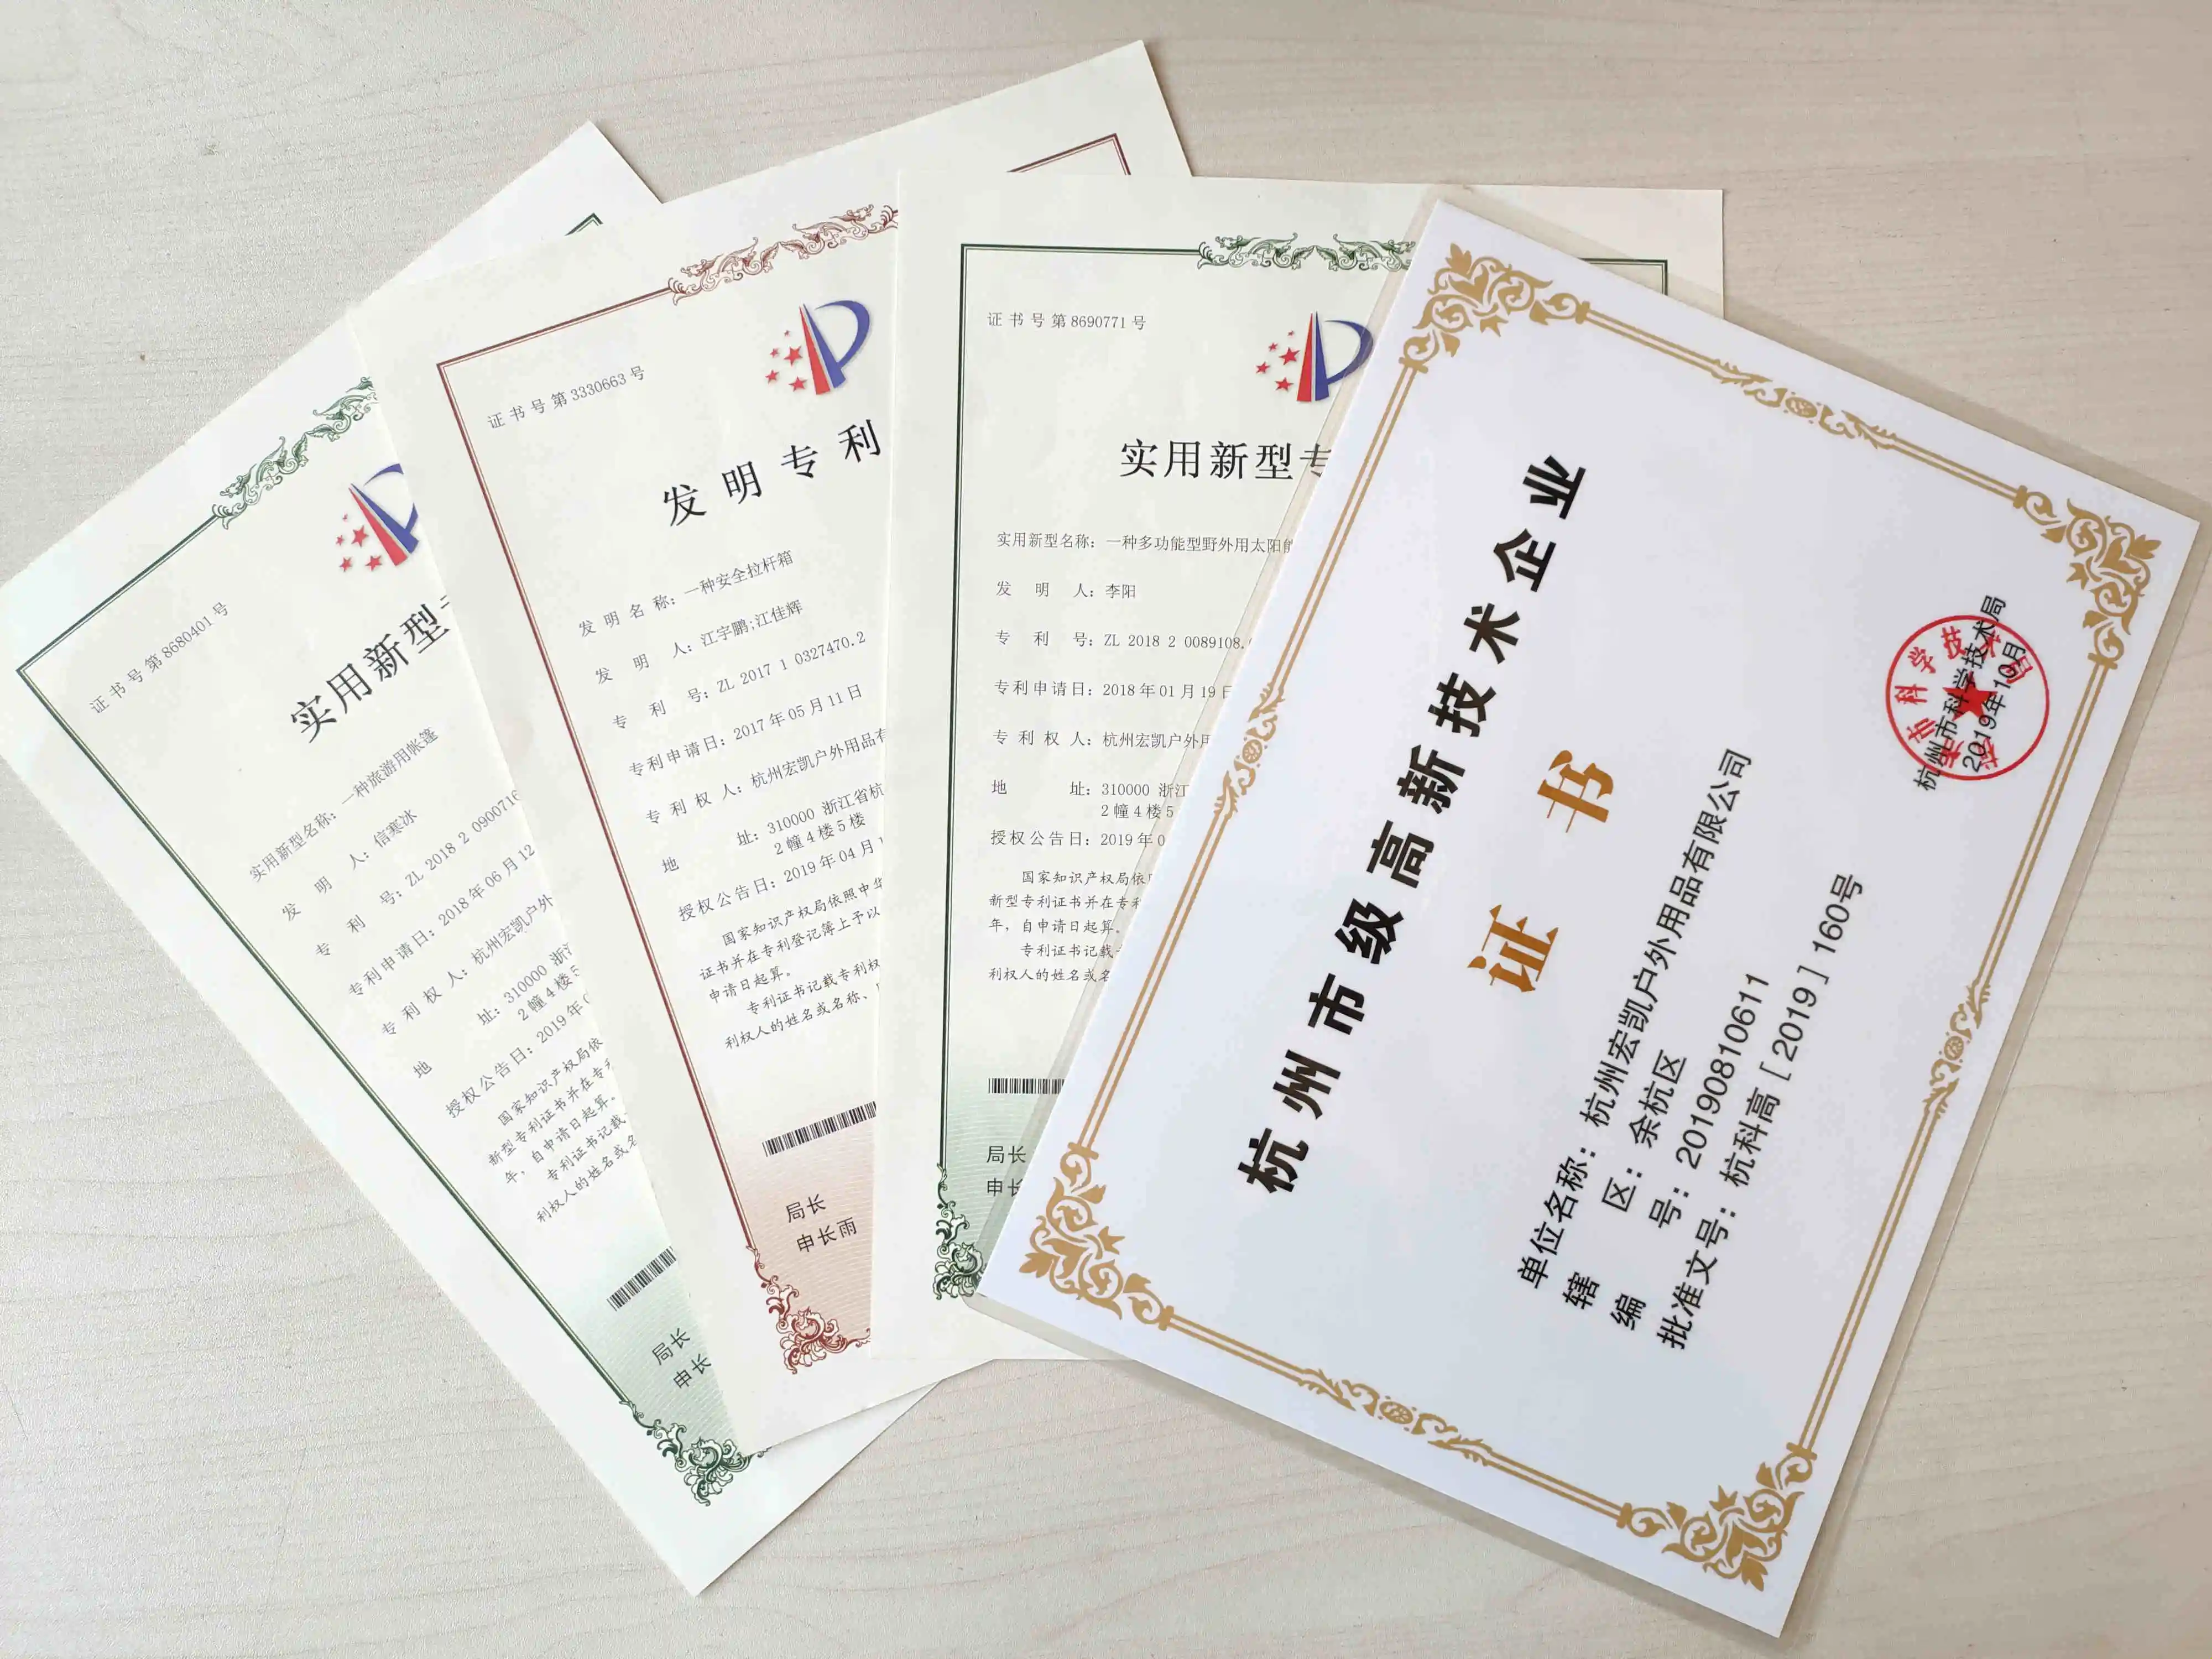 证书号第8680401号
实用新型
实用新型名称：一种旅游用帐篷
发 明 人：信寒冰
专 利 号：ZL 2018 2 0900716
专利申请日：2018年06月12
专 利 权 人：杭州宏凯户外
地 址：310000 浙江
2幢4楼5
授权公告日：2019年0
国家知识产权局依
新型专利证书并在专利
年，自申请日起算。
专利证书记载
利权人的姓名或名
局长
申长
证书号第3330663号
发明专利
发 明 名 称：一种安全拉杆箱
发 明 人：江宇鹏;江佳辉
专 利 号：ZL 2017 1 0327470.2
专利申请日：2017年05月11日
专 利 权 人：杭州宏凯户外用品有
地 址：310000 浙江省杭
2幢4楼5楼
授权公告日：2019年04月1
国家知识产权局依照中华
证书并在专利登记簿上予以
申请日起算。
专利证书记载专利权
利权人的姓名或名称、
局长
申长雨
证书号第8690771号
实用新型专
实用新型名称：一种多功能型野外用太阳能
发 明 人：李阳
专 利 号：ZL 2018 2 0089108.
专利申请日：2018年01月19日
专 利 权 人：杭州宏凯户外用
地 址：310000 浙江
2幢4楼5
授权公告日：2019年0
国家知识产权局依
新型专利证书并在专利
年，自申请日起算。
专利证书记载
利权人的姓名或名
局长
申长
杭州市级高新技术企业
证 书
单位名称：杭州宏凯户外用品有限公司
辖 区：余杭区
编 号：201908810611
批准文号：杭科高[2019]160号
杭州市科学技术局
2019年10月